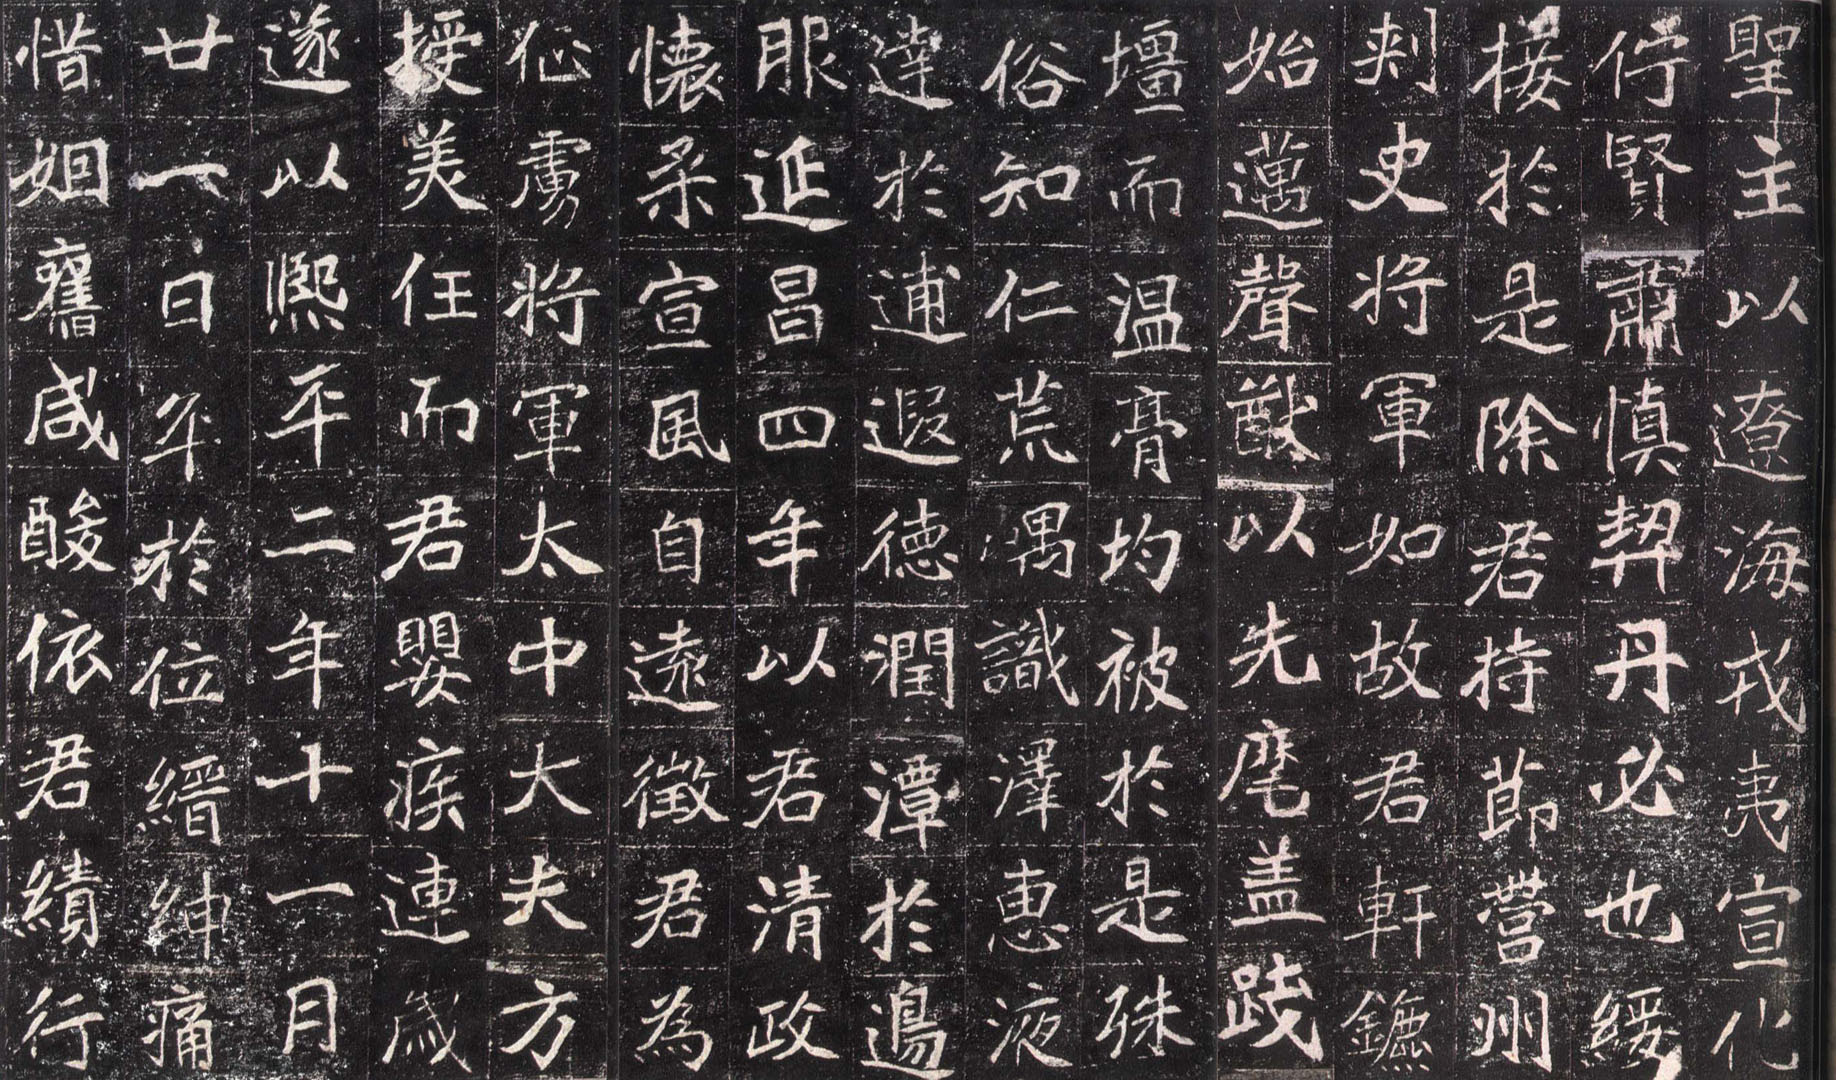 聖主以遼海戎夷宣化
佇賢肅慎契丹必也綏
接於是除君持節營州
刺史將軍如故君軒鑣
始邁聲猷以先麾盖踐
壃而温膏均被於是殊
俗知仁荒嵎識澤惠液
達於逋遐德潤潭於邊
服延昌四年以君清政
懷柔宣風自遠徵君為
征虜將軍太中大夫方
授美任而君嬰疾連歲
遂以熙平二年十一月
廿一日卒於位縉紳痛
惜姻舊咸酸依君績行